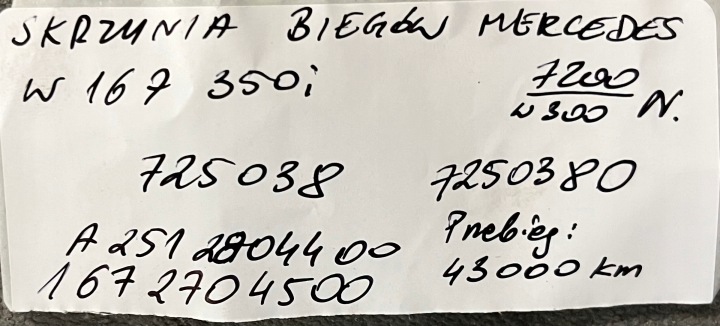 SKRZYNIA BIEGÓW MERCEDES
W 167 350i
7200
W300 N.
725038
7250380
A 251 2804400
Przebieg:
167 2704500
43000 km